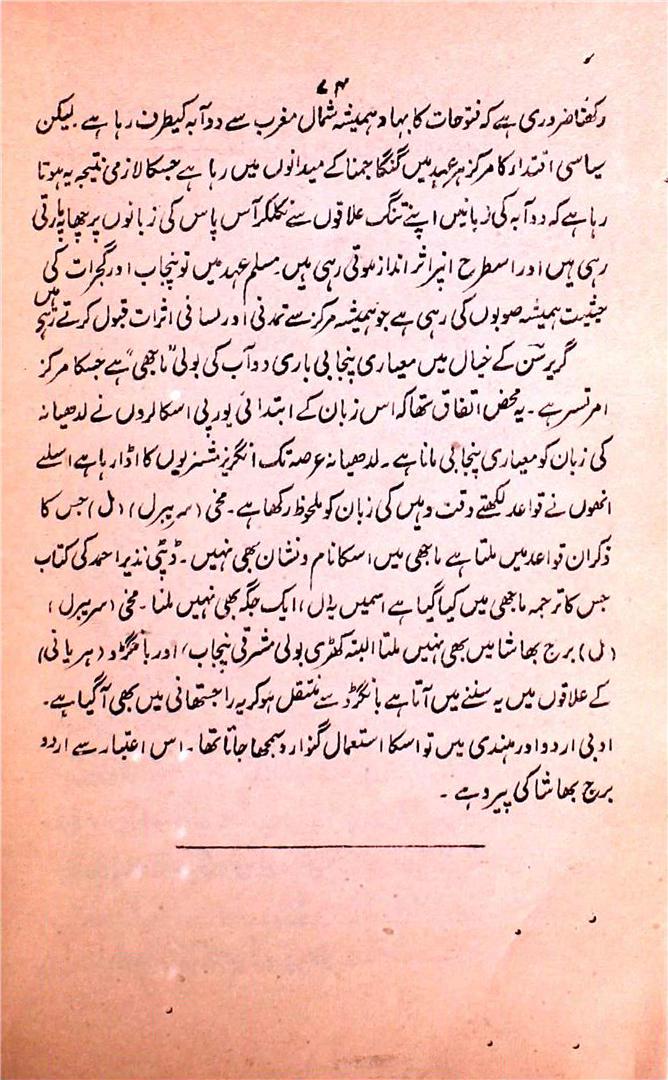 ۷۴
رکھنا ضروری ہے کہ فتوحات کا بہاو ہمیشہ شمال مغرب سے دوآبہ کیطرف رہا ہے لیکن
سیاسی اقتدار کا مرکز ہر عہد میں گنگا جمنا کے میدانوں میں رہا ہے جسکا لازمی نتیجہ یہ ہوتا
رہا ہے کہ دوآبہ کی زبانیں اپنے تنگ علاقوں سے نکلکر آس پاس کی زبانوں پر چھاپہ مارتی
رہی ہیں اور اسطرح انپر اثر انداز ہوتی رہی ہیں۔ مسلم عہد میں تو پنجاب اور گجرات کی
حیثیت ہمیشہ صوبوں کی رہی ہے جو ہمیشہ مرکز سے تمدنی اور لسانی اثرات قبول کرتے رہے ہیں
گریرسن کے خیال میں معیاری پنجابی باری دوآب کی بولی "ماجھی" ہے جسکا مرکز
امرتسر ہے۔ یہ محض اتفاق تھا کہ اس زبان کے ابتدائی یورپی اسکالروں نے لدھیانہ
کی زبان کو معیاری پنجابی مانا ہے۔ لدھیانہ عرصہ تک انگریز مشنریوں کا اڈا رہا ہے اسلے
انھوں نے قواعد لکھتے وقت وہیں کی زبان کو ملحوظ رکھا ہے۔ مخی (سریبرل) (ل) جس کا
ذکر ان قواعد میں ملتا ہے ماجھی میں اسکا نام و نشان بھی نہیں۔ ڈپٹی نذیر احمد کی کتاب
جس کا ترجمہ ماجھی میں کیا گیا ہے اسمیں یہ (ل) ایک جگہ بھی نہیں ملتا۔ مخی (سریبرل)
(ل) برج بھاشا میں بھی نہیں ملتا البتہ کھڑی بولی مشرقی پنجاب، اور بانگڑو (ہریانی)
کے علاقوں میں یہ سننے میں آتا ہے بانگڑو سے منتقل ہو کر یہ راجستھانی میں بھی آگیا ہے۔
ادبی اردو اور ہندی میں تو اسکا استعمال گنوارو سمجھا جاتا تھا۔ اس اعتبار سے اردو
برج بھاشا کی پیرو ہے۔